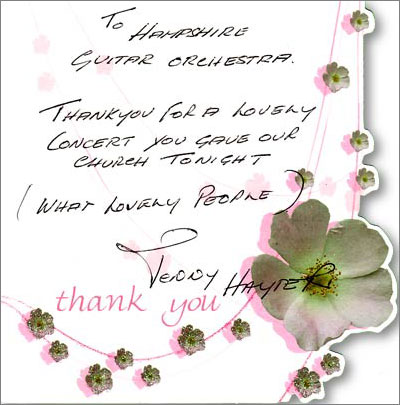 To HAMPSHIRE
GUITAR ORCHESTRA.
THANKYOU FOR A LOVELY
CONCERT YOU GAVE OUR
CHURCH TONIGHT
(WHAT LOVELY PEOPLE)
PENNY HAYTER
thank you